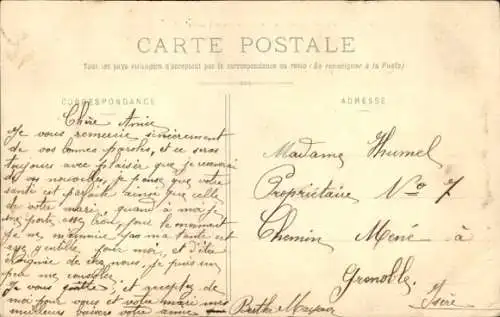 CARTE POSTALE
Tous les pays étrangers n'acceptent pas la correspondance au recto (Se renseigner à la Poste)
CORRESPONDANCE
ADRESSE
Chère Amie
Je vous remercie sincèrement
de vos bonnes paroles, et ce sera
toujours avec plaisir que je recevrai
de vos nouvelles, je pense que votre
santé est parfaite ainsi que celle
de votre mari, quand à moi je
me porte assez bien, pour le moment
je ne m'ennuie pas ma tante est
assez gentille pour moi, et d'être
éloignée de chez nous, je puis un
peu me consoler.
Je vous quitte, et acceptez de
moi pour vous et votre mari mes
meilleurs baisers votre amie
Berthe Mayour
Madame Thumel
Propriétaire No 7
Chemin Mené à
Grenoble.
Isère